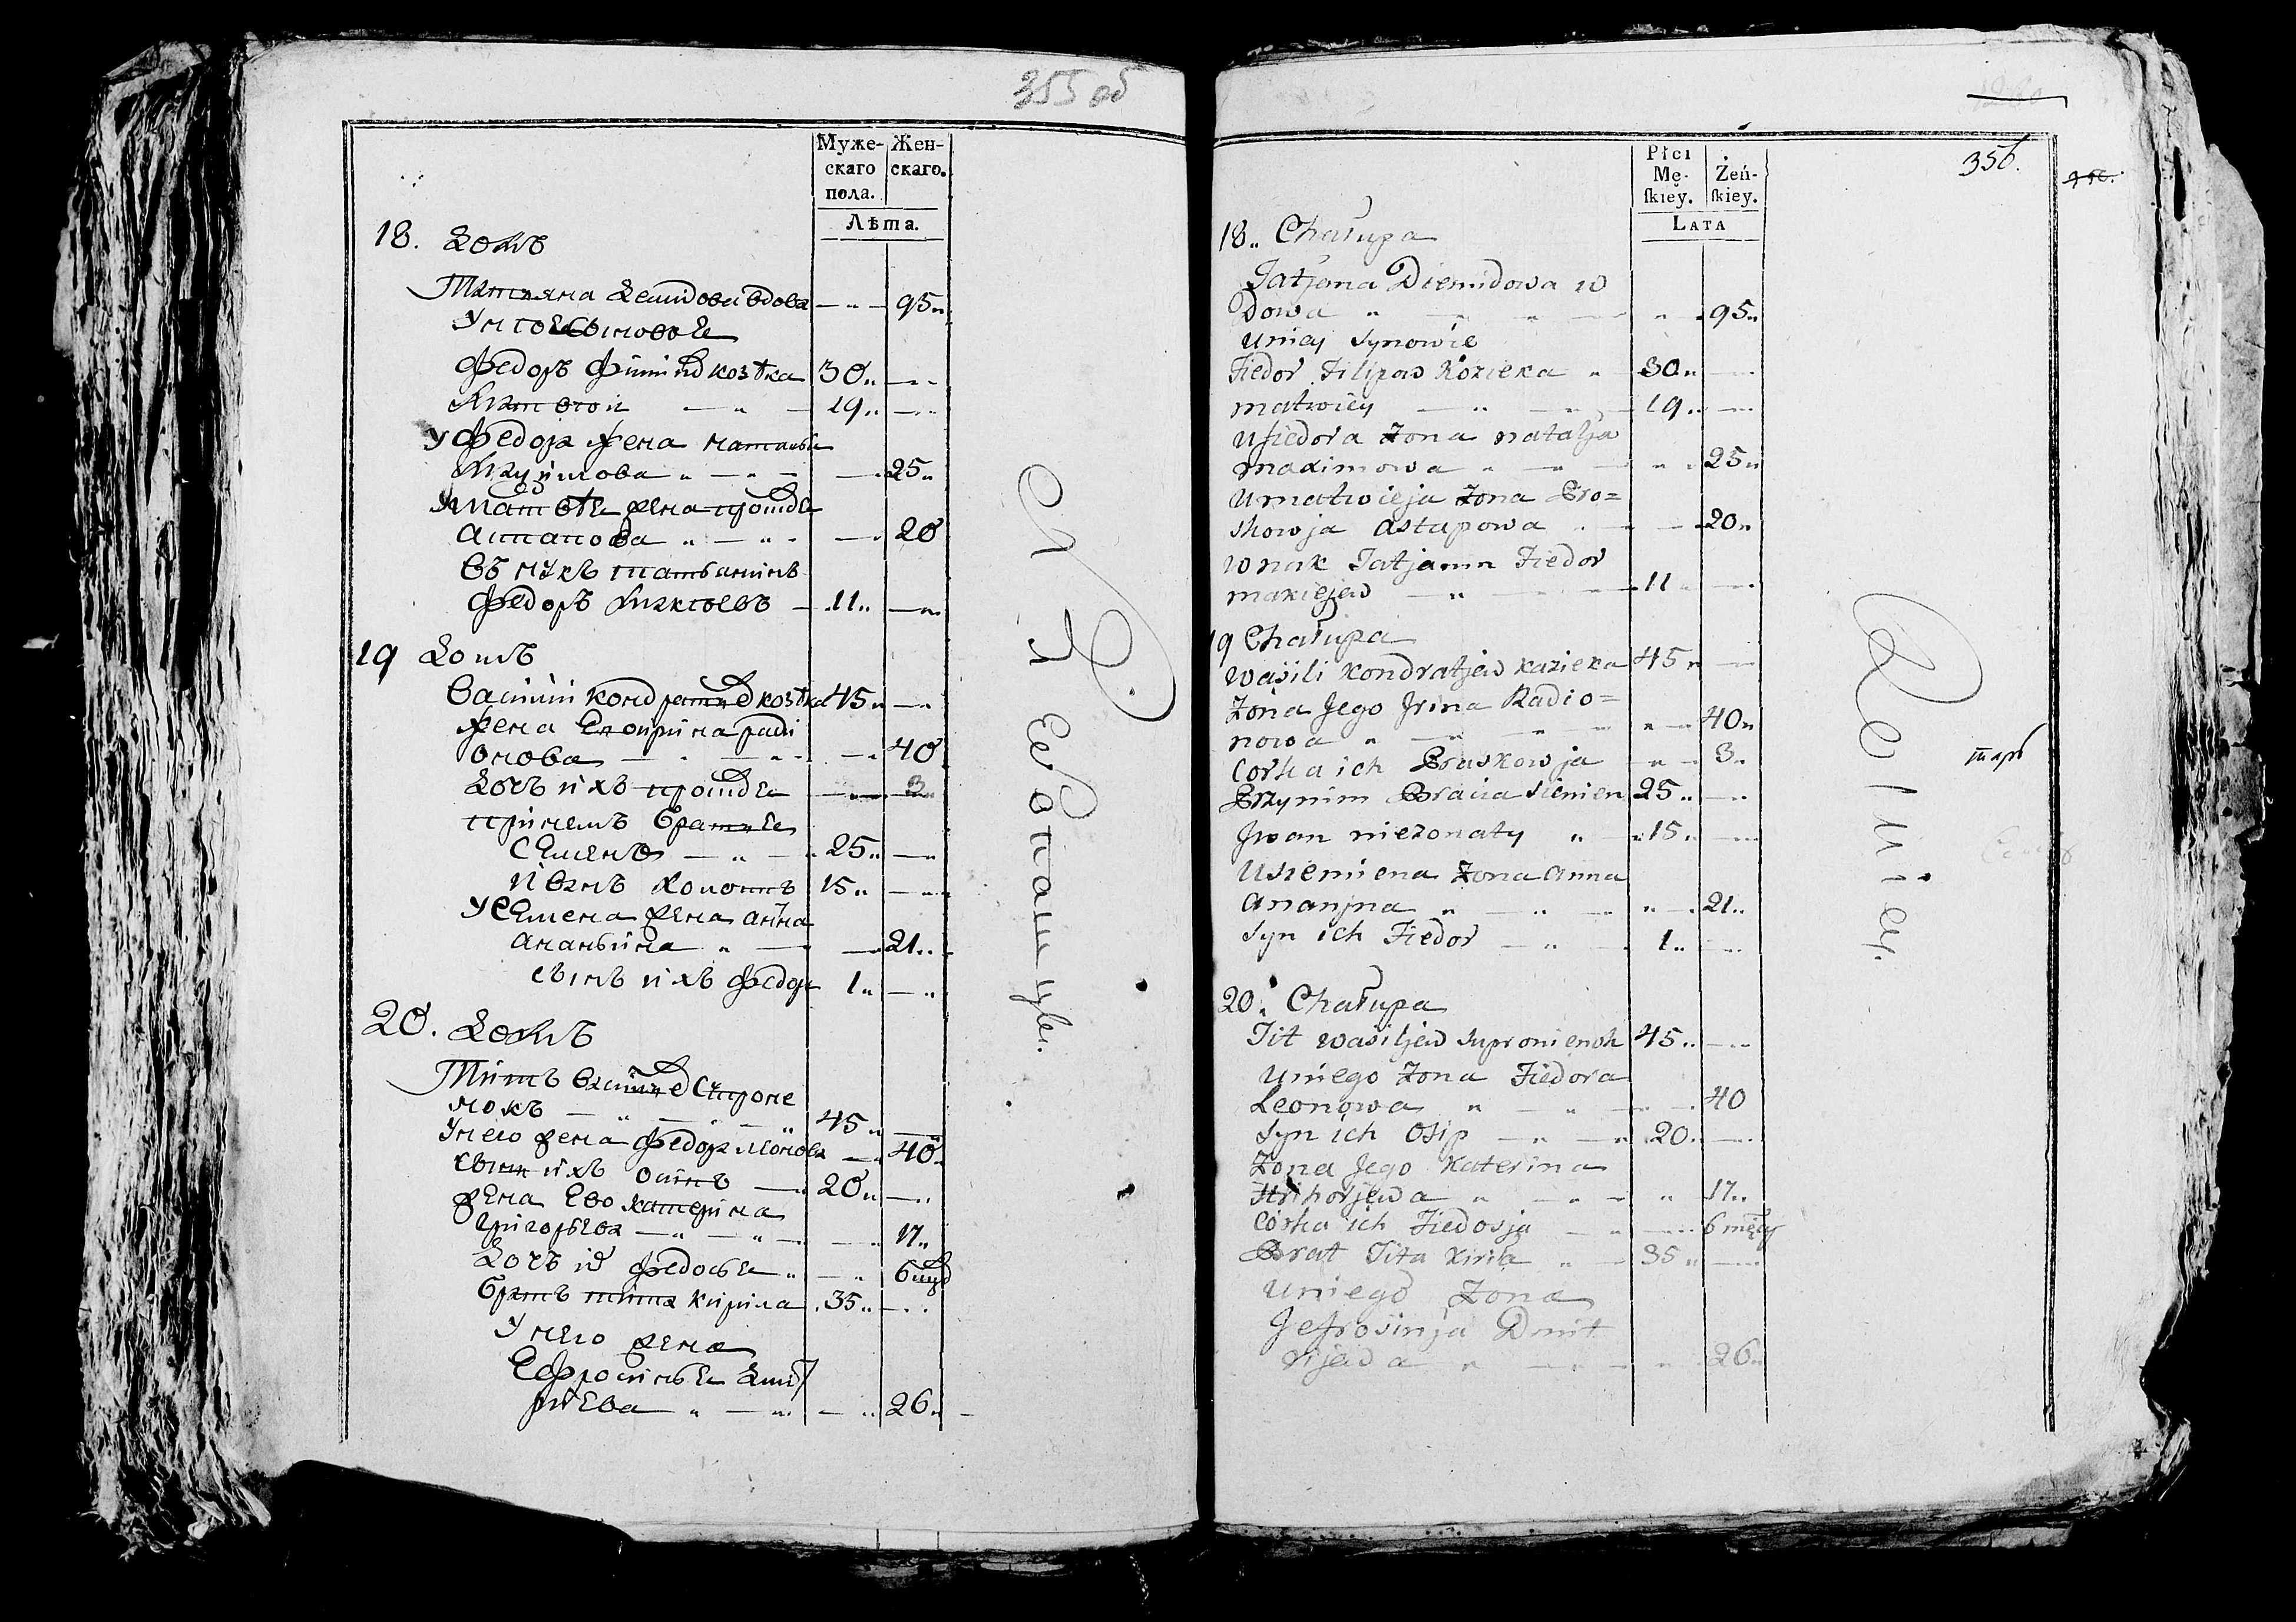 355 об
Муже-
скаго
пола.
Жен-
скаго.
Лѣта.
18. Домъ
Татьяна Демидова вдова 95
У нее Сыновье
Федоръ Филипов козѣка 30
Матвеи 19
У Федора жена наталья
Макѣимова 25
У матвѣе жена просковье
Астапова 20
Внукъ татьянинъ
Федоръ Макѣевъ 11
19 Домъ
Василии кондратьев козѣка 45
жена Ево ирина ради
онова 40
Дочь ихъ просковье 3
при немъ братье
Семенъ 25
Иванъ холостъ 15
У Семена жена анна
ананьина 21
сынъ ихъ Федор 1
20. Домъ
Титъ васильев Супроне
нокъ 45
У него жена Федора леонова 40
сын ихъ осипъ 20
жена Ево катерина
григорьева 17
Дочь их Федосье 6
братъ тита кирила 35
У него жена
Ефросинье Дмит
риева 26
356.
Płci
Mę-
skiey.
Żeń-
skiey.
LATA
18.. Chałupa
Tatjana Diemidowa w
Dowa 95
u niey Synowie
Fiedor Filipow Kozieka 30
matwiey 19
u fiedora Zona natalja
maximowa 25
u matwieja Zona Pro=
skowja astapowa 20
wnuk Tatjanin Fiedor
makiejew 11
19 Chałupa
wasili Kondratjew kazieka 45
Zona Jego Jrina Radio=
nowa 40
Corka ich Praskowja 3
Przynim Bracia Siemien 25
Jwan niezonaty 15
u siemiena Zona Anna
Ananjna 21
Syn ich Fiedor 1
20. Chałupa
Tit wasiljew Supronienok 45
uniego Zona Fiedora
Leonowa 40
Syn ich Osip 20
Zona Jego Katerina
Hrihorjewa 17
Córka ich Fiedosja 6
Brat Tita Kiriła 35
uniego Zona
Jefrosinja Dmit
rijewa 26